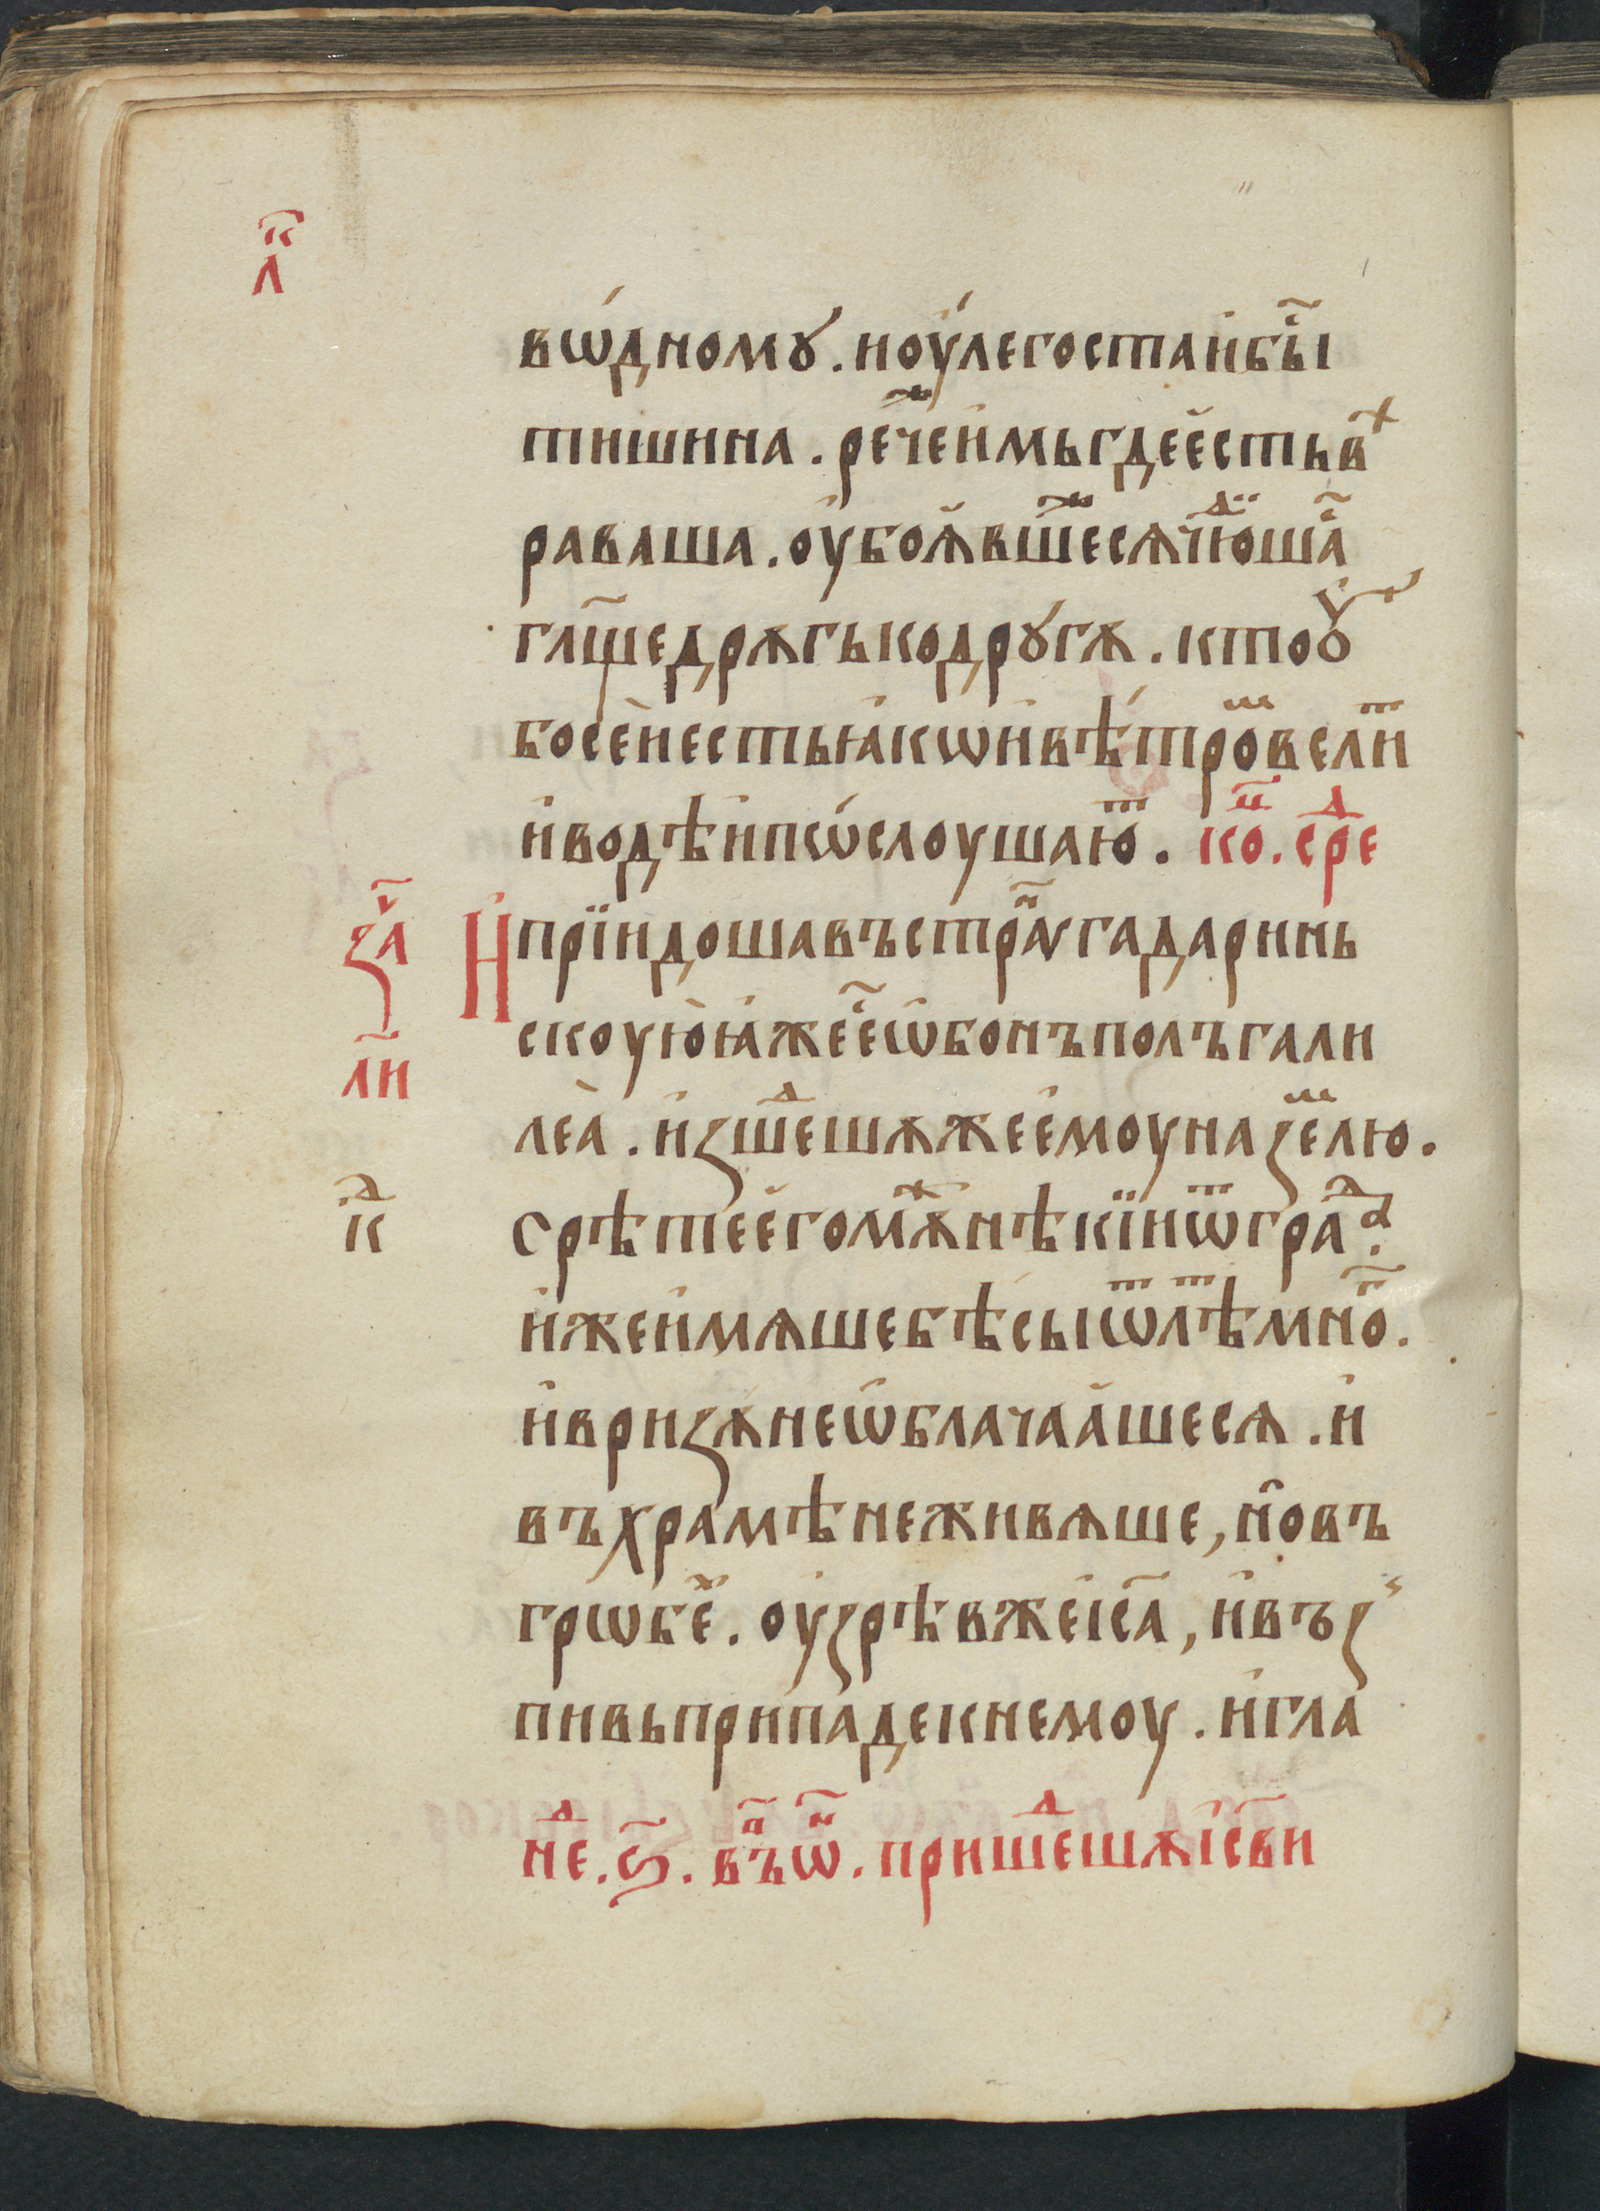 л҃к
вѡ́дномꙋ.ноу́легостаи҆бы̑
тишина. рече̑и҆мьгдее҆стьвⷯ
раваша. оу҆боꙗ҆вшⷤесѧчю̑шаⷭ
гл҃щедрѧгькодрꙋгѧ. ктооу҆
босе́и҆естьꙗ҆кѡи҆вѣ́тро̑велиⷮ
и҆водѣи҆пѡ́слоушаюⷮ. коⷩ҇. среⷣ
за҃ч
Ипрїидошавъстранꙋгадаринь
скоую҆ꙗ҆жее҆ⷭѡ҆бонъполъгали
ли҃
леа̀. и҆зшеⷣшꙗжее҆моуназеⷨлю.
к҃д
срѣтее҆гомꙋ̑нѣкїиѿграⷣа.
и҆жеи҆мѧшебѣсыѿлѣⷮмноⷢ.
и҆вризꙋнеѡ҆блачаа҆шесѧ. и҆
въхрамѣнеживѧше, но̑въ
грѡбе̑ⷯ. оу҆зрѣвжеі҆са҃, и҆въз
пивьприпадекнемоу. и҆гла
неⷣ. ѕ҃. въⷩѡ҃. пришеⷣшꙋі҆сви